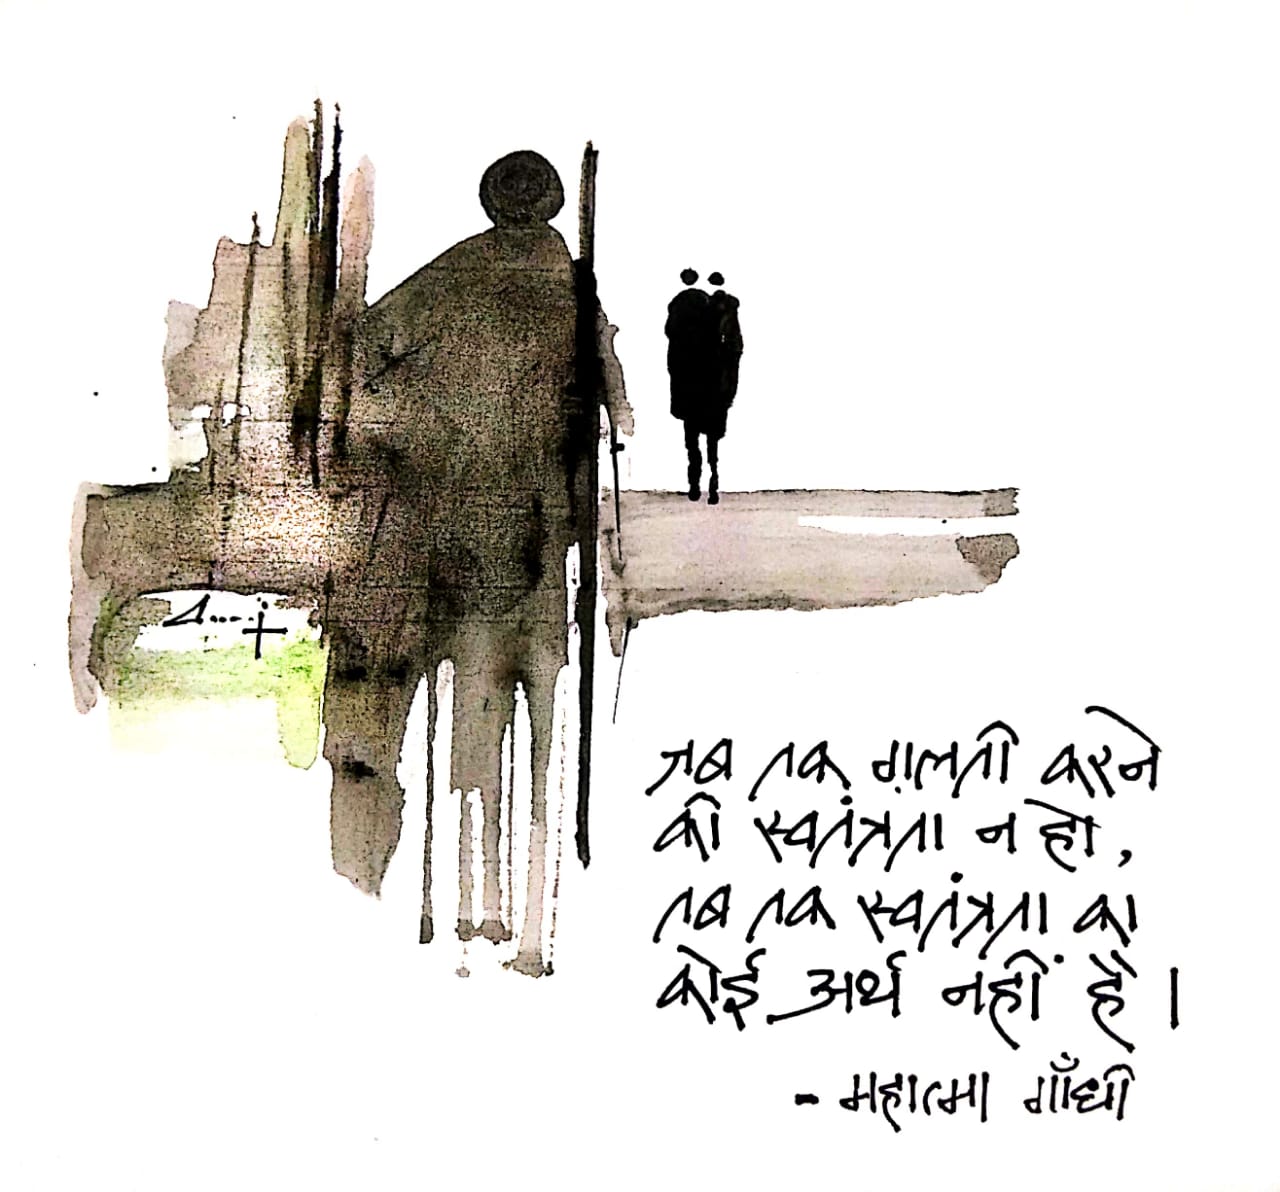 जब तक ग़लती करने
की स्वतंत्रता न हो,
तब तक स्वतंत्रता का
कोई अर्थ नहीं है।
- महात्मा गाँधी